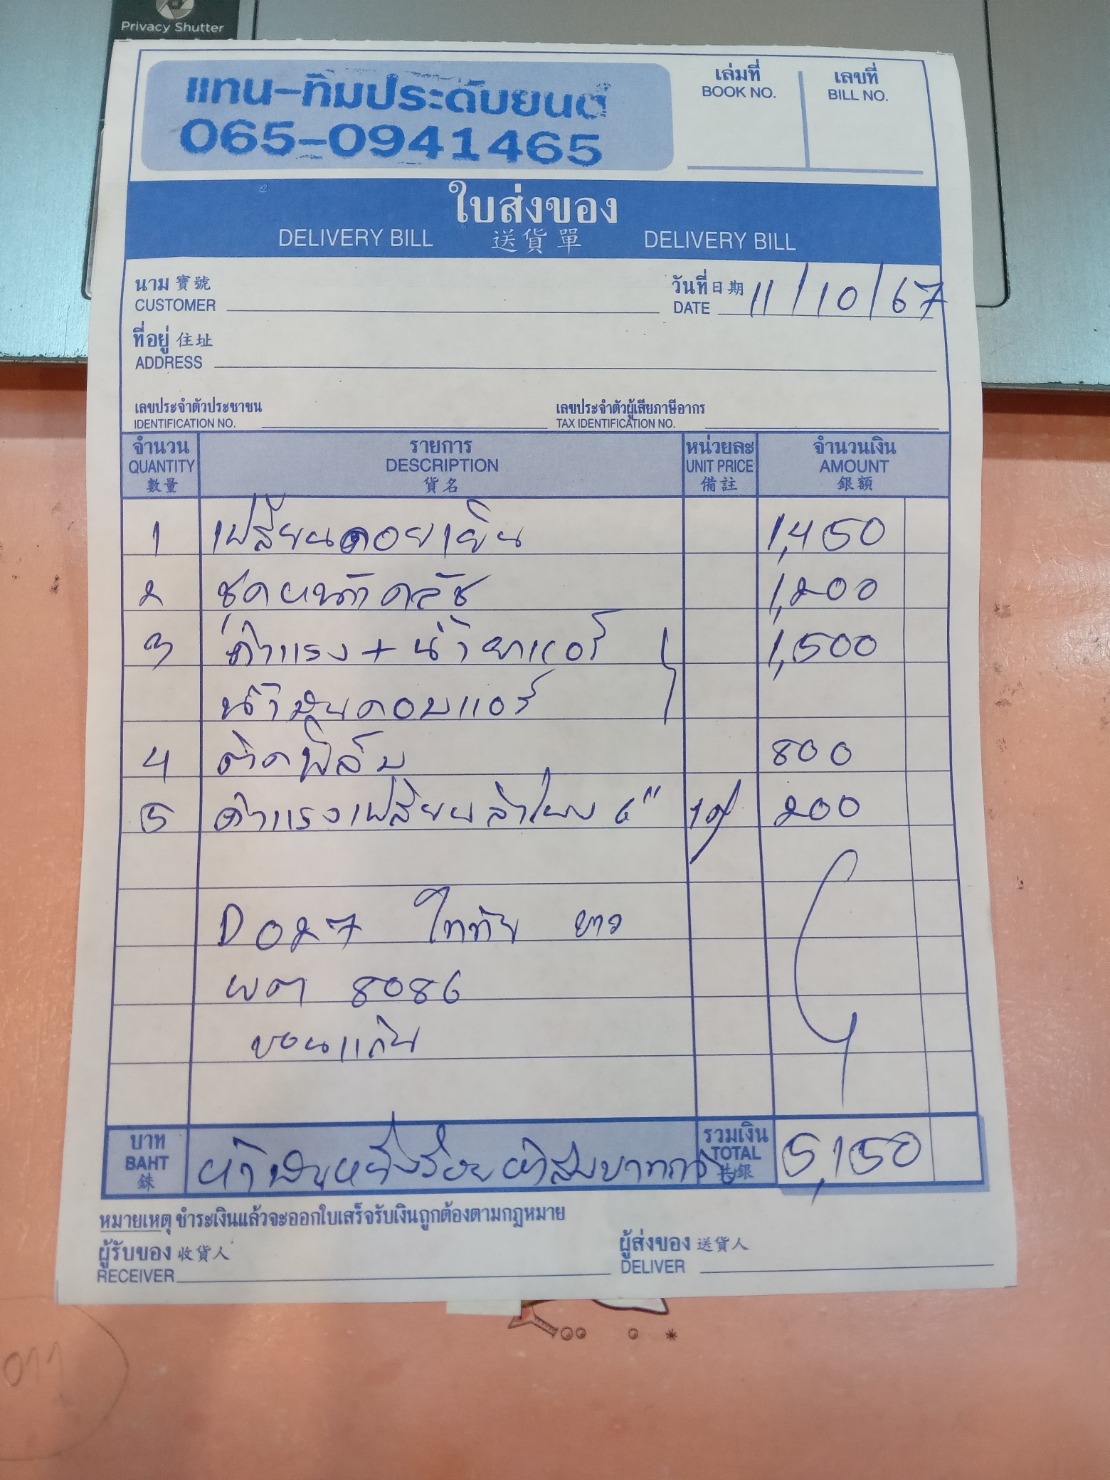 Privacy Shutter
แทน-ทิมประดับยนต์
065-0941465
เล่มที่
BOOK NO.
เลขที่
BILL NO.
ใบส่งของ
DELIVERY BILL 送貨單 DELIVERY BILL
นาม 寳號
CUSTOMER
วันที่ 日期
DATE 11/10/67
ที่อยู่ 住址
ADDRESS
เลขประจำตัวประชาชน
IDENTIFICATION NO.
เลขประจำตัวผู้เสียภาษีอากร
TAX IDENTIFICATION NO.
จำนวน รายการ หน่วยละ จำนวนเงิน
QUANTITY DESCRIPTION UNIT PRICE AMOUNT
數量 貨名 備註 銀額
1 เปลี่ยนคอยเย็น 1,450
2 ชุดหน้าคลัช 1,200
3 ค่าแรง+น้ำยาแอร์ 1,500
น้ำมันคอมแอร์
4 ติดฟิล์ม 800
5 ค่าแรงเปลี่ยนลำโพง 6" 200
D027 ไททัน ขาว
ผต 8086
ขอนแก่น
บาท
BAHT
銖
ห้าพันหนึ่งร้อยห้าสิบบาทถ้วน
รวมเงิน
TOTAL
共銀
5,150
หมายเหตุ ชำระเงินแล้วจะออกใบเสร็จรับเงินถูกต้องตามกฎหมาย
ผู้รับของ 收貨人
RECEIVER
ผู้ส่งของ 送貨人
DELIVER
011